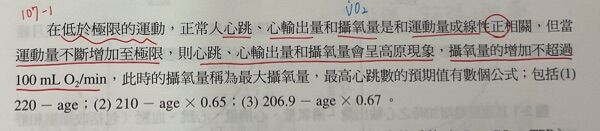 107-1
V̇O₂
在低於極限的運動，正常人心跳、心輸出量和攝氧量是和運動量成線性正相關，但當
運動量不斷增加至極限，則心跳、心輸出量和攝氧量會呈高原現象，攝氧量的增加不超過
100 mL O₂/min，此時的攝氧量稱為最大攝氧量，最高心跳數的預期值有數個公式；包括(1)
220 − age；(2) 210 − age × 0.65；(3) 206.9 − age × 0.67。